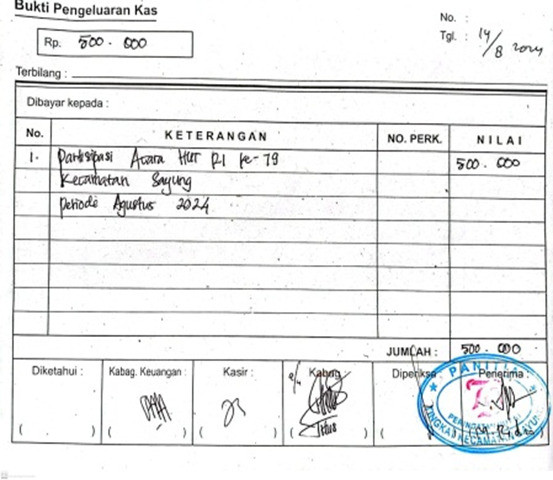 Bukti Pengeluaran Kas
No. :
Rp. 500.000
Tgl. : 14/8 2024
Terbilang :
Dibayar kepada :
No. KETERANGAN NO. PERK. NILAI
1. Partisipasi Acara HUT RI ke-79 500.000
Kecamatan Sayung
Periode Agustus 2024
JUMLAH : 500.000
Diketahui : Kabag. Keuangan : Kasir : Kabag Diperiksa Penerima :
PANITIA
( ) ( ) ( ) ( Titus ) ( ) ( )